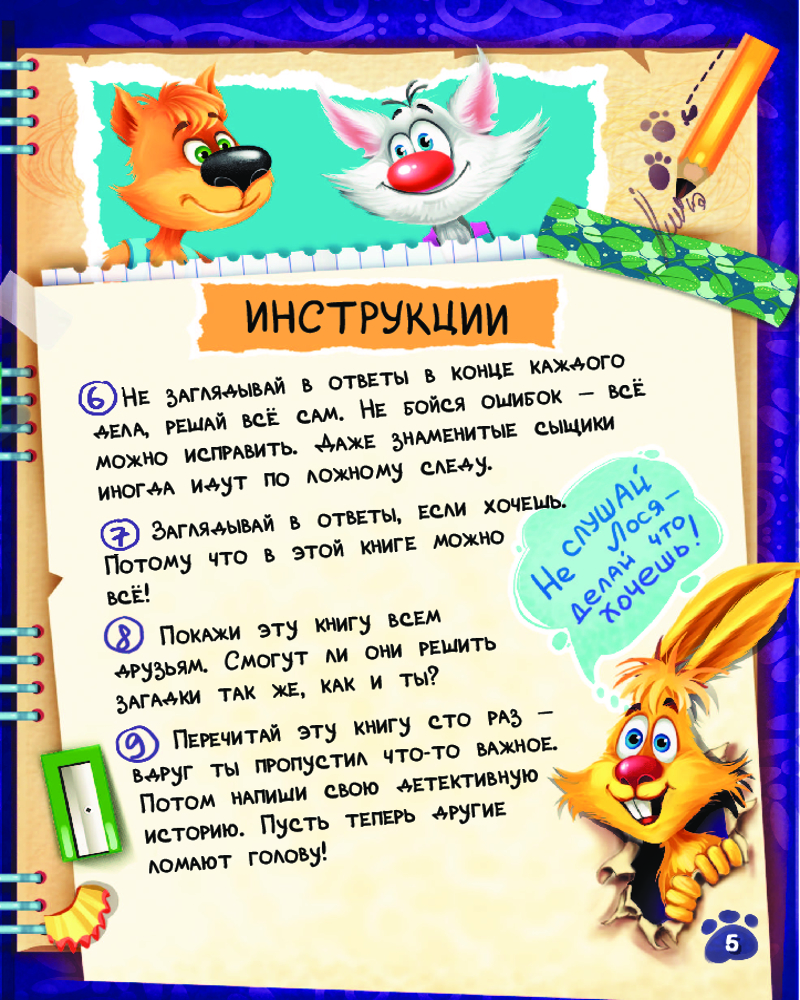 ИНСТРУКЦИИ
6 Не заглядывай в ответы в конце каждого
дела, решай всё сам. Не бойся ошибок – всё
можно исправить. Даже знаменитые сыщики
иногда идут по ложному следу.
7 Заглядывай в ответы, если хочешь.
Потому что в этой книге можно
всё!
Не слушай
Лося –
делай что
хочешь!
8 Покажи эту книгу всем
друзьям. Смогут ли они решить
загадки так же, как и ты?
9 Перечитай эту книгу сто раз –
вдруг ты пропустил что-то важное.
Потом напиши свою детективную
историю. Пусть теперь другие
ломают голову!
5